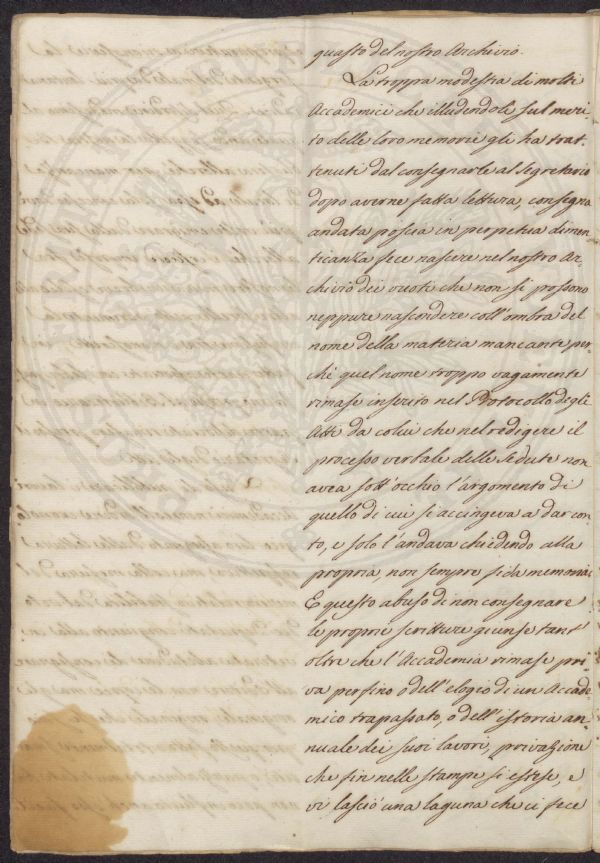 guasto del nostro Archivio.
La troppa modestia di molti
Accademici che illudendoli sul meri-
to delle loro memorie gli ha trat-
tenuti dal consegnarle al Segretario
dopo averne fatta lettura, consegna
andata poscia in perpetua dimen-
ticanza fece nascere nel nostro Ar-
chivio dei vuoti che non si possono
neppure nascondere coll'ombra del
nome della materia mancante per-
chè quel nome troppo vagamente
rimase inserito nel Protocollo degli
Atti da colui che nel redigere il
processo verbale delle Sedute non
avea sott'occhio l'argomento di
quello di cui si accingeva a dar con-
to, e solo l'andava chiedendo alla
propria non sempre fida memoria.
E questo abuso di non consegnare
le proprie scritture giunse tant'
oltre che l'Accademia rimase pri-
va perfino o dell'elogio di un Accade-
mico trapassato, o dell'istoria an-
nuale dei suoi lavori, privazione
che fin nelle stampe si estese, e
vi lasciò una laguna che ci fece